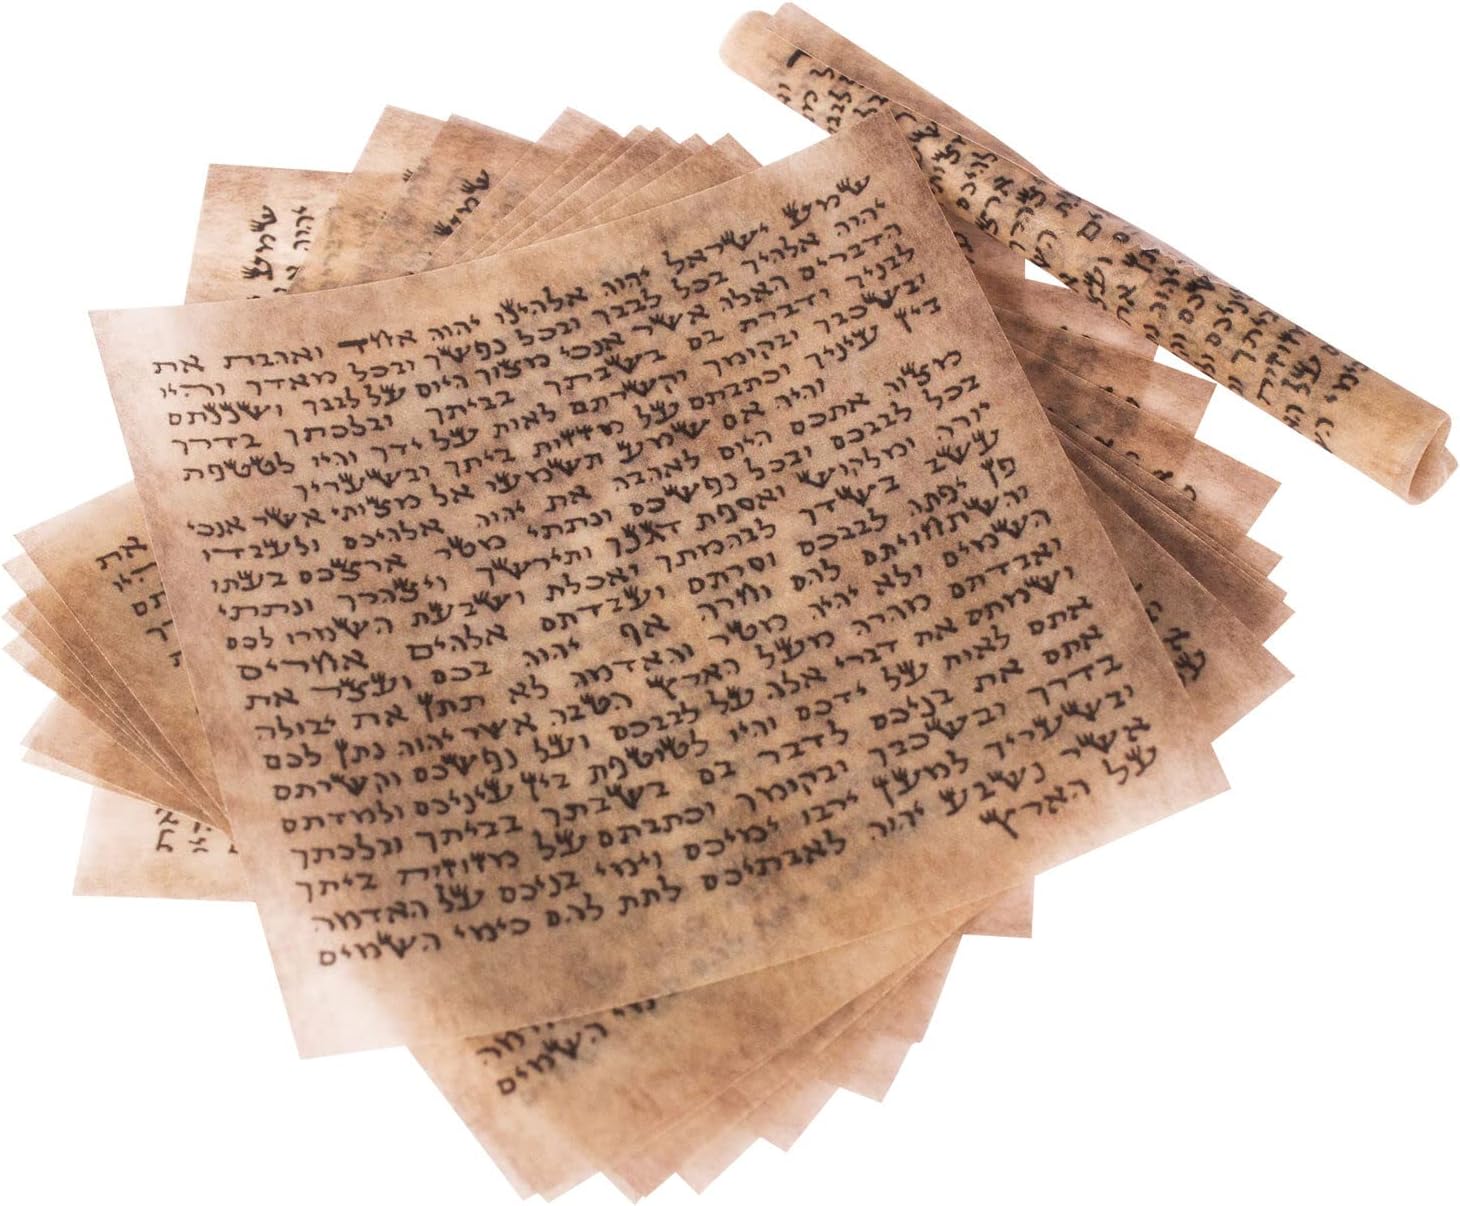 שמע ישראל יהוה אלהינו יהוה אחד ואהבת את
יהוה אלהיך בכל לבבך ובכל נפשך ובכל מאדך והיו
הדברים האלה אשר אנכי מצוך היום על לבבך ושננתם
לבניך ודברת בם בשבתך בביתך ובלכתך בדרך
ובשכבך ובקומך וקשרתם לאות על ידך והיו לטטפת
בין עיניך וכתבתם על מזזות ביתך ובשעריך
והיה אם שמע תשמעו אל מצותי אשר אנכי
מצוה אתכם היום לאהבה את יהוה אלהיכם ולעבדו
בכל לבבכם ובכל נפשכם ונתתי מטר ארצכם בעתו
יורה ומלקוש ואספת דגנך ותירשך ויצהרך ונתתי
עשב בשדך לבהמתך ואכלת ושבעת השמרו לכם
פן יפתה לבבכם וסרתם ועבדתם אלהים אחרים
והשתחויתם להם וחרה אף יהוה בכם ועצר את
השמים ולא יהיה מטר והאדמה לא תתן את יבולה
ואבדתם מהרה מעל הארץ הטבה אשר יהוה נתן לכם
ושמתם את דברי אלה על לבבכם ועל נפשכם וקשרתם
אתם לאות על ידכם והיו לטוטפת בין עיניכם ולמדתם
אתם את בניכם לדבר בם בשבתך בביתך ובלכתך
בדרך ובשכבך ובקומך וכתבתם על מזוזות ביתך
ובשעריך למען ירבו ימיכם וימי בניכם על האדמה
אשר נשבע יהוה לאבתיכם לתת להם כימי השמים
על הארץ
שמע
יהוה
שמע
את
השמים